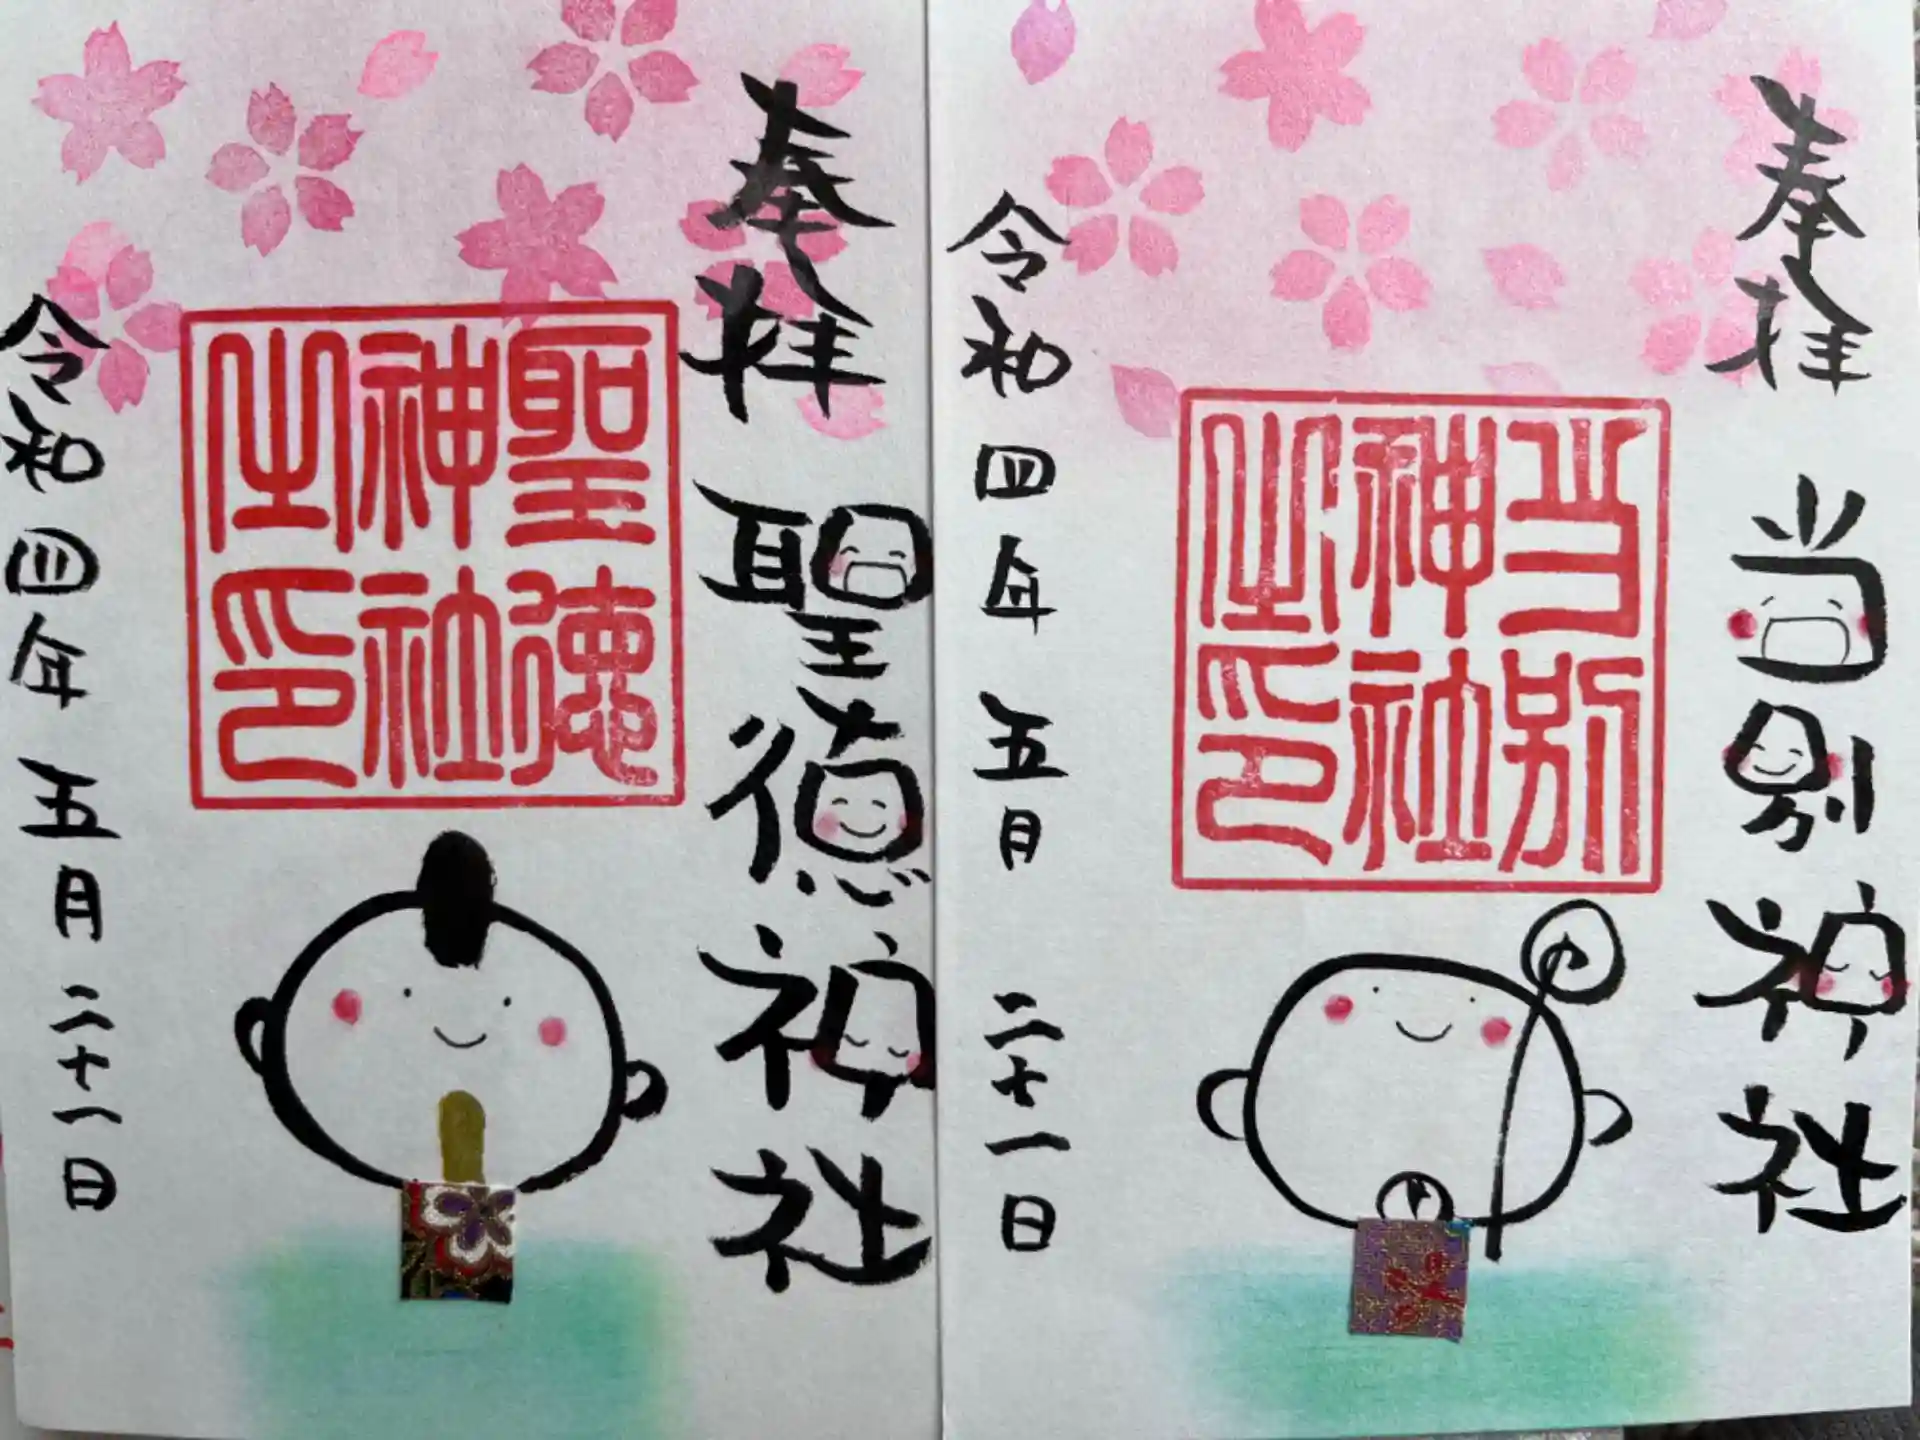 奉拝
当別神社
当別
神社
之印
令和四年五月二十一日
奉拝
聖徳神社
聖徳
神社
之印
令和四年五月二十一日